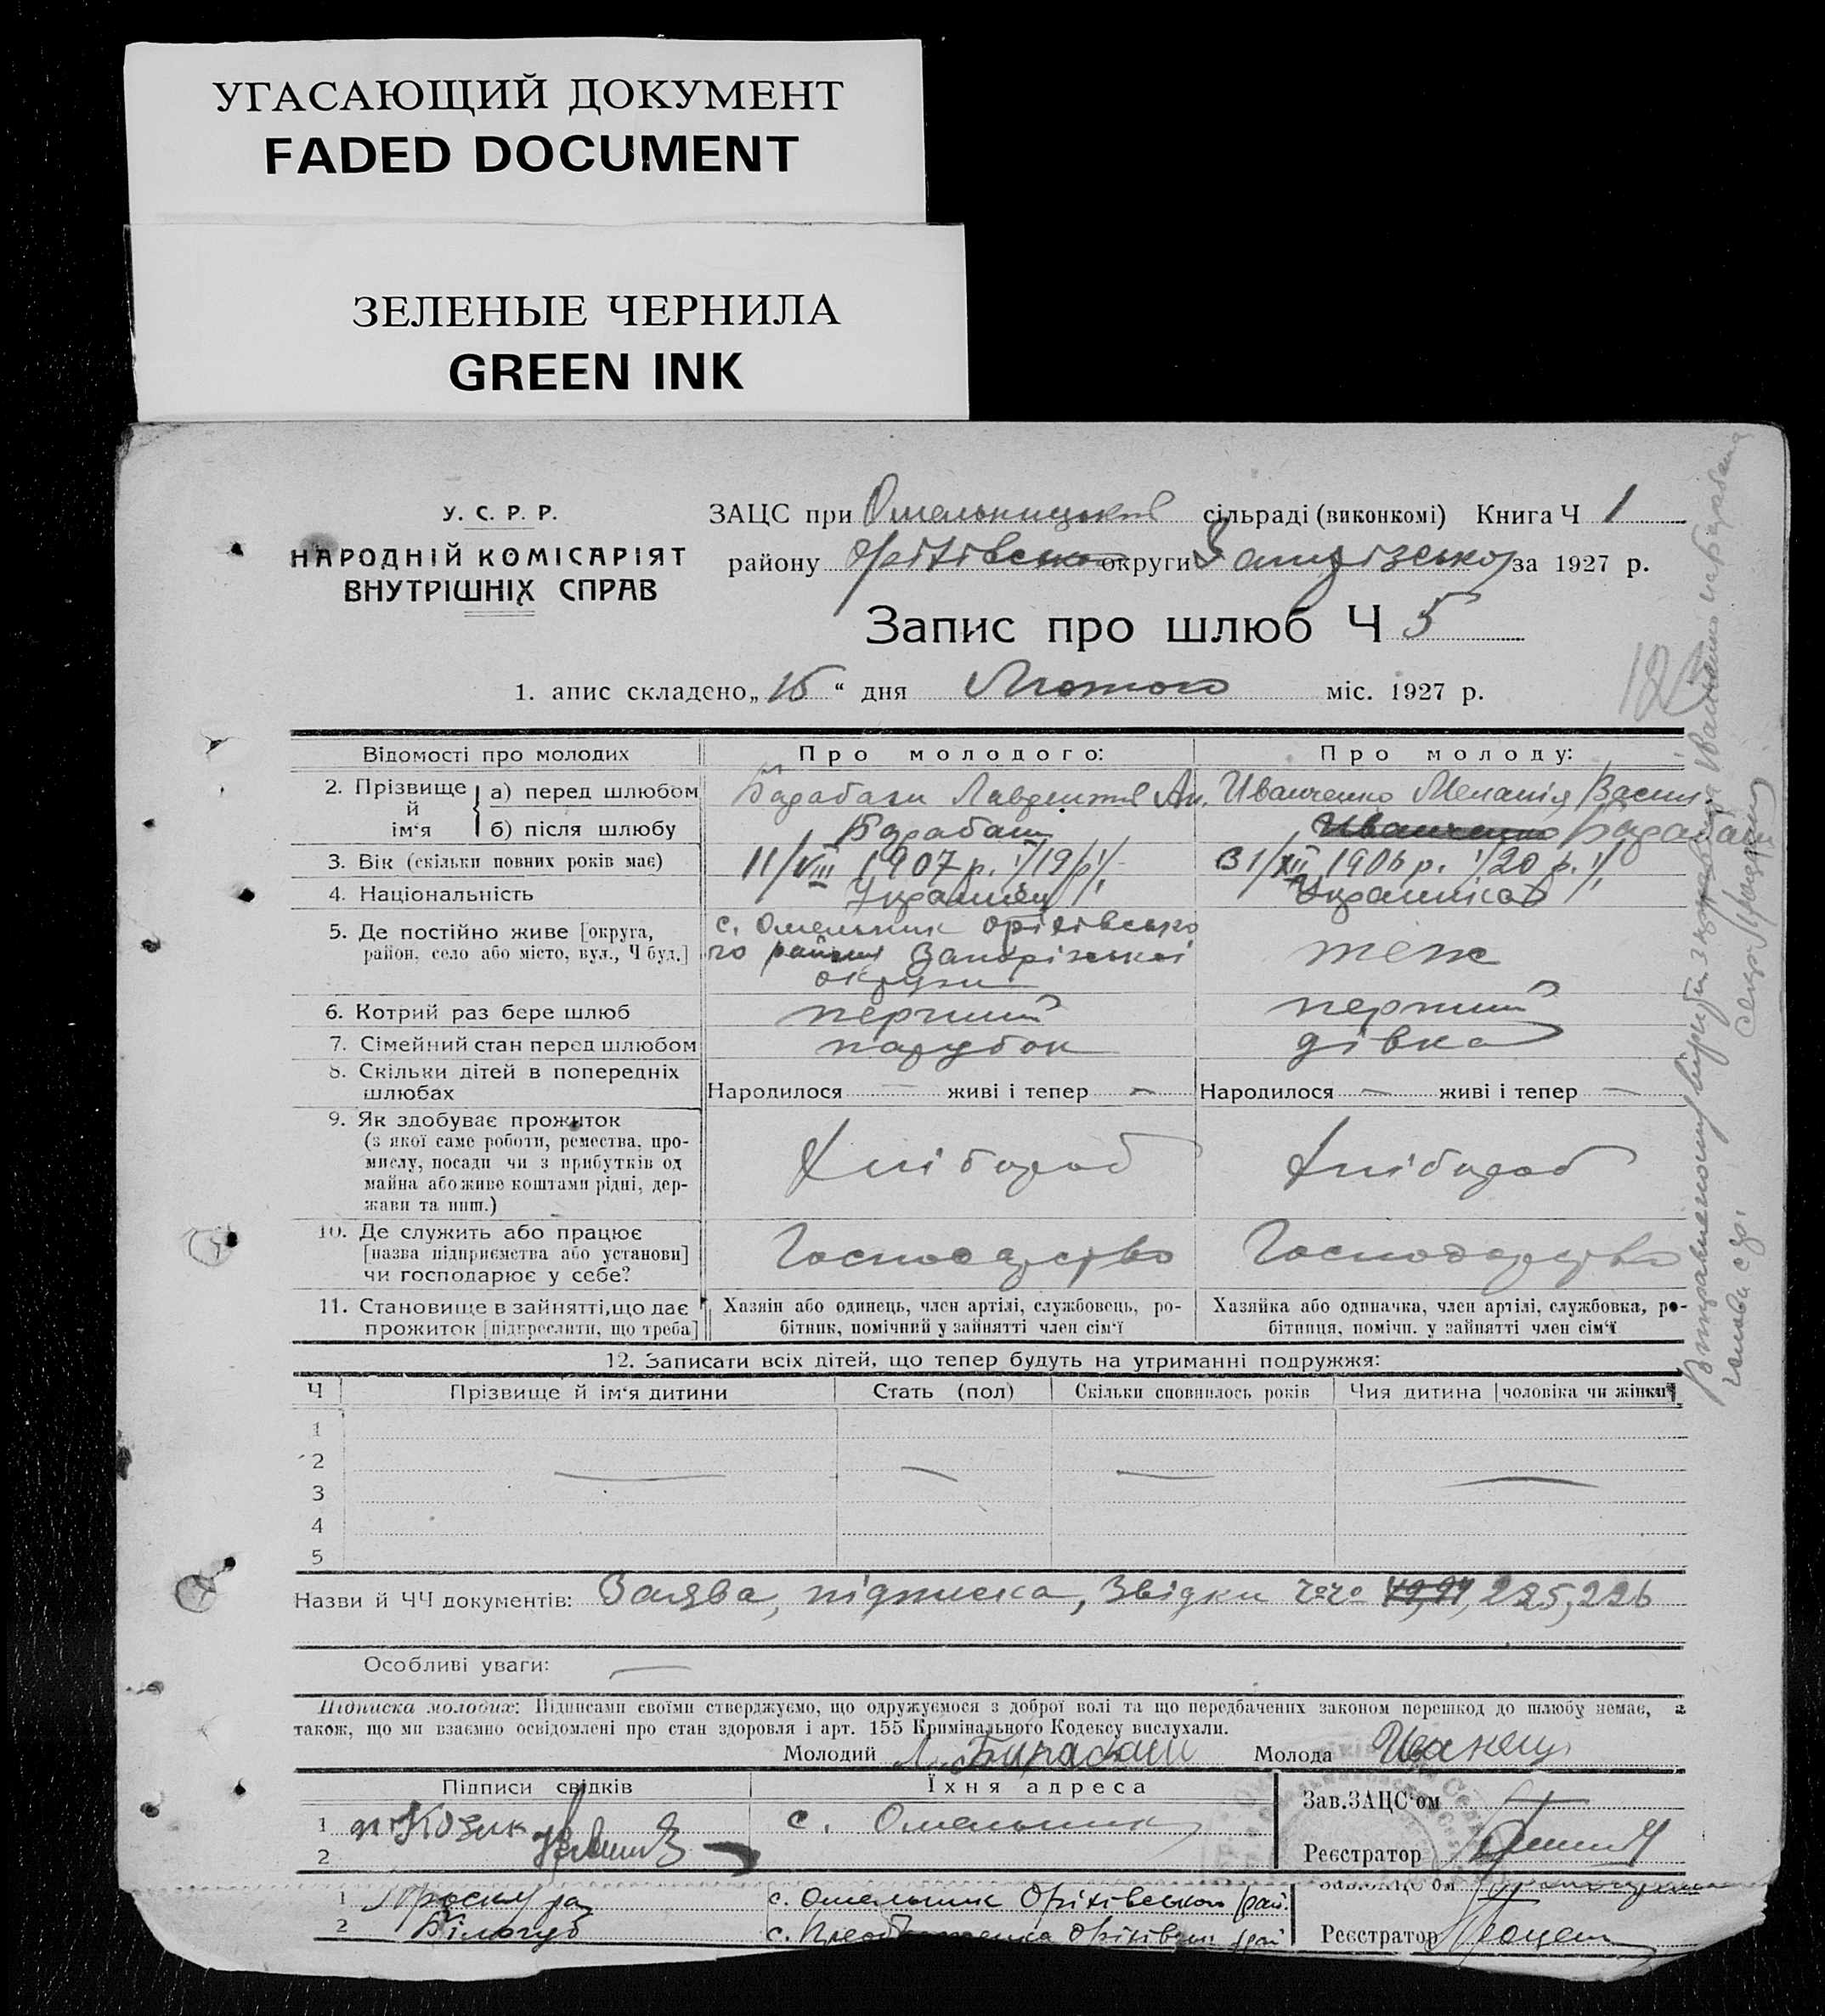 УГАСАЮЩИЙ ДОКУМЕНТ
FADED DOCUMENT
ЗЕЛЕНЫЕ ЧЕРНИЛА
GREEN INK
У. С. Р. Р.
НАРОДНІЙ КОМІСАРІЯТ
ВНУТРІШНІХ СПРАВ
ЗАЦС при Омельницькій сільраді (виконкомі) Книга Ч 1
району Оріхівсько округи Запорізькој за 1927 р.
Запис про шлюб Ч 5
1. апис складено „ 15 “ дня Лютого міс. 1927 р.
Відомості про молодих Про молодого: Про молоду:
2. Прізвище й ім‘я а) перед шлюбом Барабаш Лаврентій Ан. Иванченко Меланія Васил.
б) після шлюбу Барабаш Иванченко Барабаш
3. Вік (скільки повних років має) 11/VIII 1907 р. /19 р/ 31/XII 1906 р. /20 р./
4. Національність Українец Українка
5. Де постійно живе [округа, район, село або місто, вул., Ч буд.] с. Омельник Оріхівсько
го району Запорізької теж
округи
6. Котрий раз бере шлюб перший перший
7. Сімейний стан перед шлюбом парубок дівка
8. Скільки дітей в попередніх
шлюбах Народилося — живі і тепер — Народилося — живі і тепер —
9. Як здобуває прожиток
(з якої саме роботи, ремества, про-
мислу, посади чи з прибутків од Хлібороб Хлібороб
майна або живе коштами рідні, дер-
жави та инш.)
10. Де служить або працює
[назва підприємства або установи] Господарство Господарство
чи господарює у себе?
11. Становище в зайнятті, що дає Хазяїн або одинець, член артілі, службовець, ро- Хазяйка або одиначка, член артілі, службовка, ро-
прожиток [підкреслити, що треба] бітник, помічний у зайнятті член сім‘ї бітниця, помічн. у зайнятті член сім‘ї
12. Записати всіх дітей, що тепер будуть на утриманні подружжя:
Ч Прізвище й ім‘я дитини Стать (пол) Скільки сповнилось років Чия дитина [чоловіка чи жінки]
1
2
3
4
5
Назви й ЧЧ документів: Заява, підписка, Звідки чого 225, 226
Особливі уваги: —
Підписка молодих: Підписами своїми стверджуємо, що одружуємося з доброї волі та що передбачених законом перешкод до шлюбу немає, а
також, що ми взаємно освідомлені про стан здоровля і арт. 155 Кримінального Кодексу вислухали.
Молодий Л. Барабаш Молода
Підписи свідків Їхня адреса
Зав. ЗАЦС‘ом
1 Козик с. Омельник
2 Реєстратор
1 Проскура с. Омельник Оріхівського рай.
2 Білогуб с. Оріхівськ рай Реєстратор Троцен